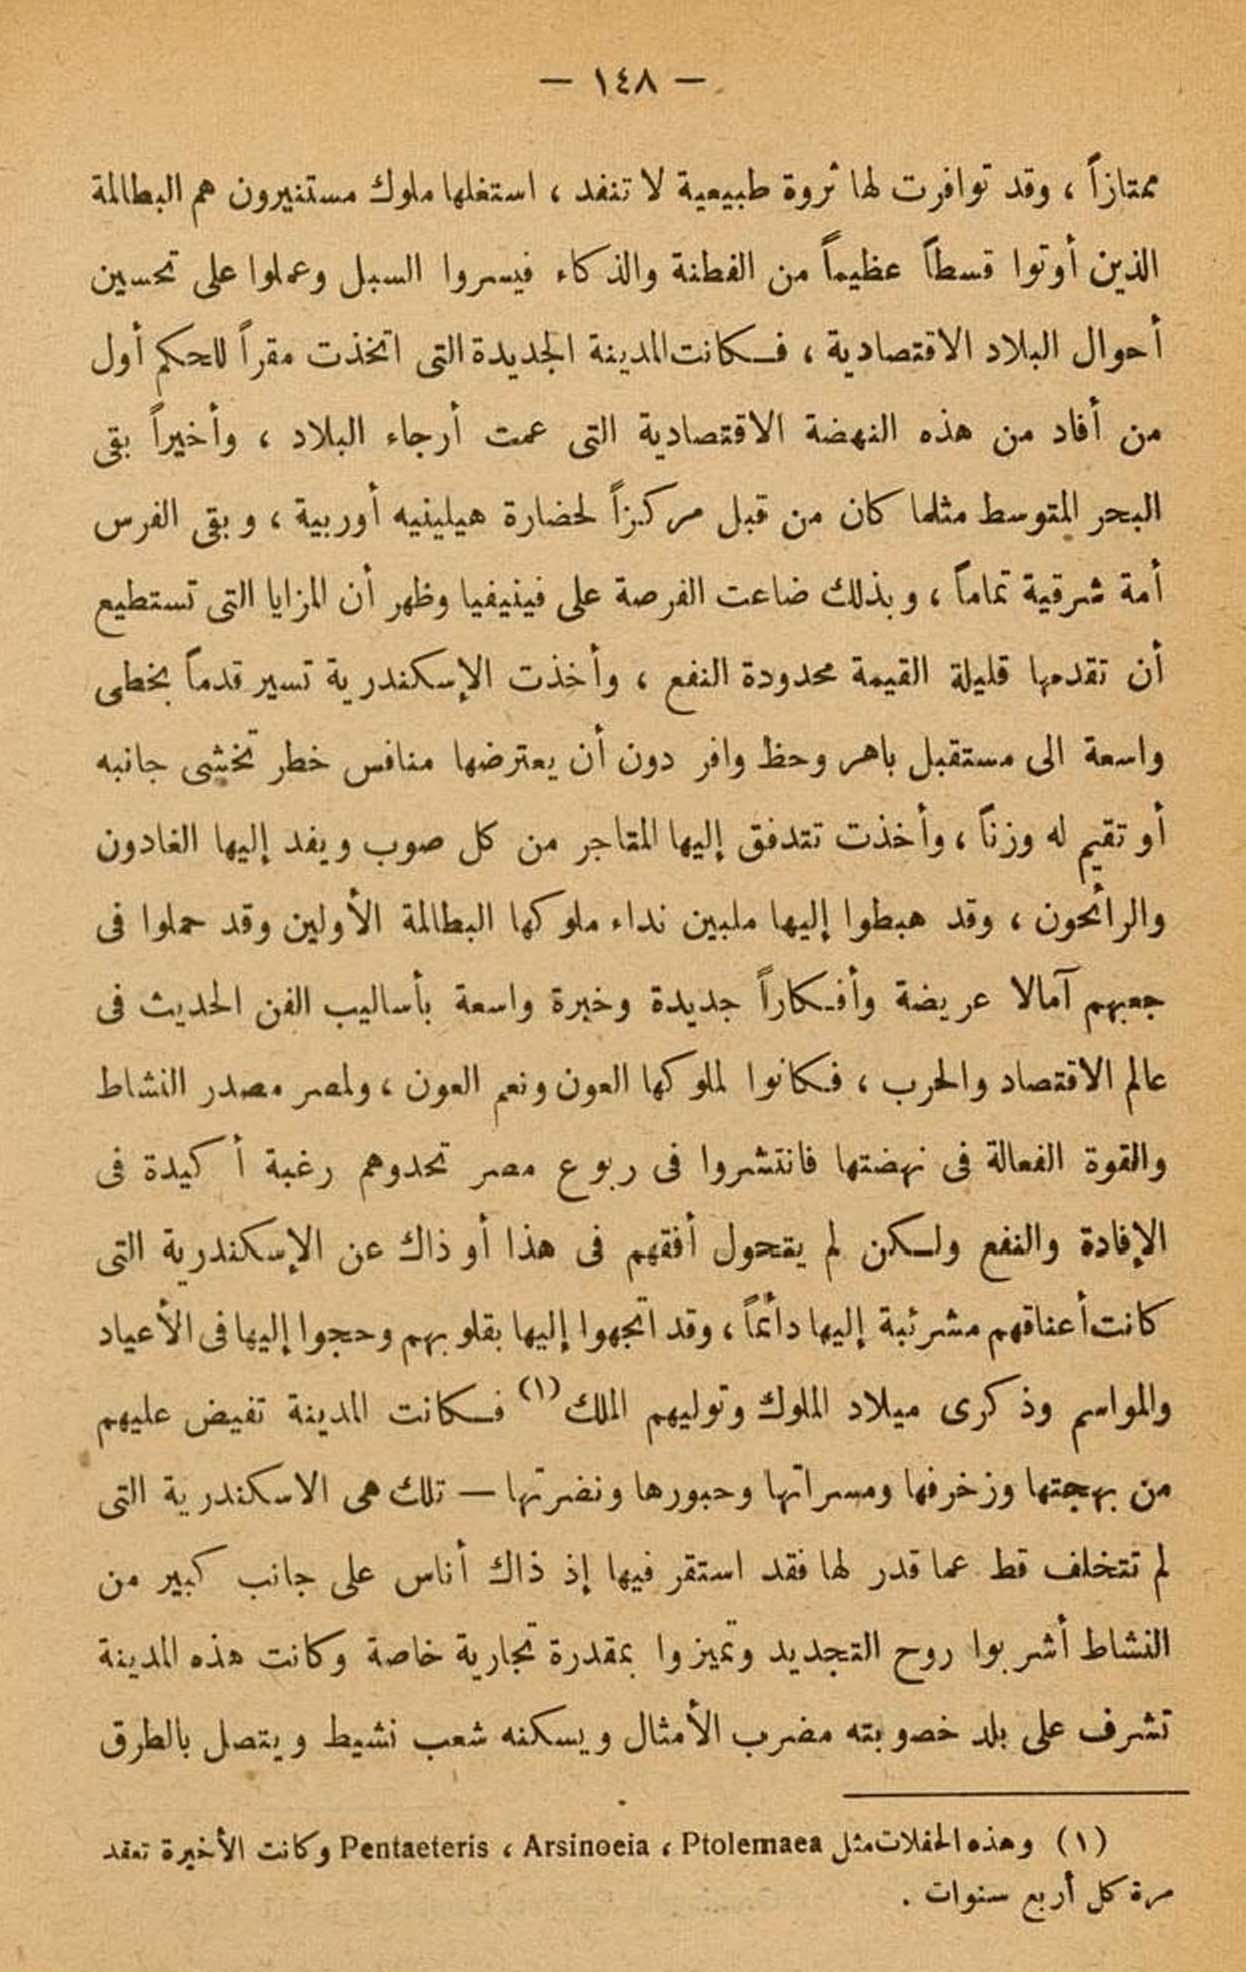 — ١٤٨ —
ممتازاً ، وقد توافرت لها ثروة طبيعية لا تنفد ، استغلها ملوك مستنيرون هم البطالمة
الذين أوتوا قسطاً عظيماً من الفطنة والذكاء فيسروا السبل وعملوا على تحسين
أحوال البلاد الاقتصادية ، فكانت المدينة الجديدة التى اتخذت مقراً للحكم أول
من أفاد من هذه النهضة الاقتصادية التى عمت أرجاء البلاد ، وأخيراً بقى
البحر المتوسط مثلما كان من قبل مركزاً لحضارة هيلينيه أوربية ، وبقى الفرس
أمة شرقية تماماً ، وبذلك ضاعت الفرصة على فينيفيا وظهر أن المزايا التى تستطيع
أن تقدمها قليلة القيمة محدودة النفع ، وأخذت الإسكندرية تسير قدماً بخطى
واسعة الى مستقبل باهر وحظ وافر دون أن يعترضها منافس خطر تخشى جانبه
أو تقيم له وزناً ، وأخذت تتدفق إليها المتاجر من كل صوب ويفد إليها الغادون
والرائحون ، وقد هبطوا إليها ملبين نداء ملوكها البطالمة الأولين وقد حملوا فى
جعبهم آمالا عريضة وأفكاراً جديدة وخبرة واسعة بأساليب الفن الحديث فى
عالم الاقتصاد والحرب ، فكانوا لملوكها العون ونعم العون ، ولمصر مصدر النشاط
والقوة الفعالة فى نهضتها فانتشروا فى ربوع مصر تحدوهم رغبة أكيدة فى
الإفادة والنفع ولكن لم يتحول أفقهم فى هذا أو ذاك عن الإسكندرية التى
كانت أعناقهم مشرئبة إليها دائماً ، وقد اتجهوا إليها بقلوبهم وحجوا إليها فى الأعياد
والمواسم وذكرى ميلاد الملوك وتوليهم الملك (١) فكانت المدينة تفيض عليهم
من بهجتها وزخرفها ومسراتها وحبورها ونضرتها — تلك هى الاسكندرية التى
لم تتخلف قط عما قدر لها فقد استقر فيها إذ ذاك أناس على جانب كبير من
النشاط أشربوا روح التجديد وتميزوا بمقدرة تجارية خاصة وكانت هذه المدينة
تشرف على بلد خصوبته مضرب الأمثال ويسكنه شعب نشيط ويتصل بالطرق
(١) وهذه الحفلات مثل Ptolemaea ، Arsinoeia ، Pentaeteris وكانت الأخيرة تعقد
مرة كل أربع سنوات .